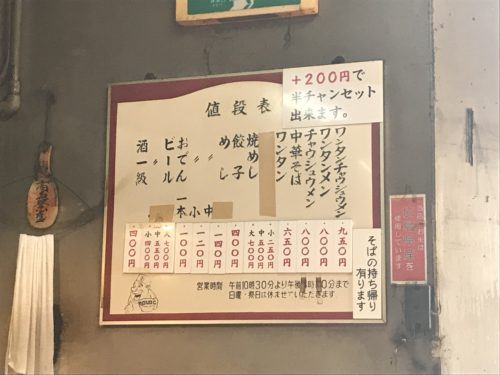 +200円で
半チャンセット
出来ます。
値段表
ワンタンチャウシュウメン
ワンタンメン
チャウシュウメン
中華そば
ワンタン
焼めし
餃子
めし
〃 中
〃 小
おでん 一本
ビール
酒一級
九五〇円
八〇〇円
八〇〇円
六五〇円
小二五〇円
中五〇〇円
大七〇〇円
四〇〇円
一二〇円
一〇〇円
七〇〇円
中五〇〇円
小四〇〇円
四〇〇円
そばの持ち帰り
有ります
営業時刻 午前10時30分より午後
0分まで
日曜・祭日は休ませていただきます。
を
使用しています